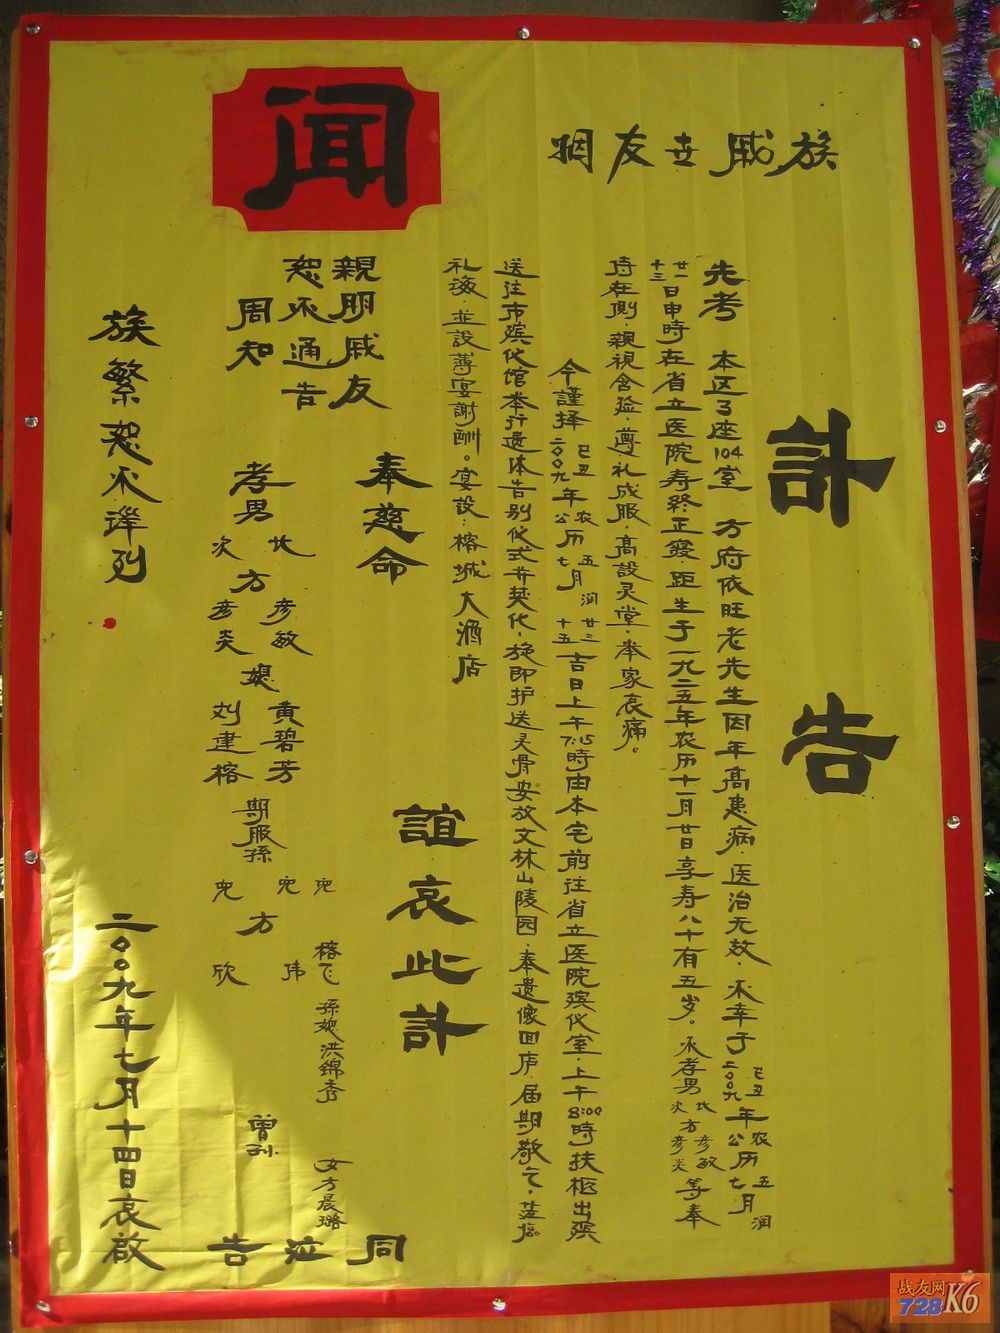 族戚世友姻
訃告
先考 本区3座104室 方府依旺老先生因年高患病·医治无效·不幸于己丑二〇〇九年农公历五七月润
廿一十三日申時在省立医院寿終正寢·距生于一九二五年农历十一月廿日享寿八十有五岁。不孝男长次方彦敏彦炎等奉
侍在側·親視含殓·尊礼成服·高設灵堂·举家哀痛。
今謹择己丑二〇〇九年农公历五七月润廿三十五吉日上午7:15時由本宅前往省立医院殡仪室上午8:00時扶柩出殡
送往市殡仪馆举行遗体告别仪式并焚化·旋即护送灵骨安放文林山陵园·奉遗像回庐·届期敬乞·莅临
礼海·並設薄宴謝酬。宴設：榕城大酒店
奉慈命
誼哀此訃
闻
親朋戚友
恕不通告
周知
孝男长次方彦敏彦炎媳黄碧芳刘建榕
期服孫
方
伟欣
榕飞
孫媳洪錦秀
曾孙
女方晨璐
同泣告
族繁恕不详列
二〇〇九年七月十四日哀啟
战友网
728K6